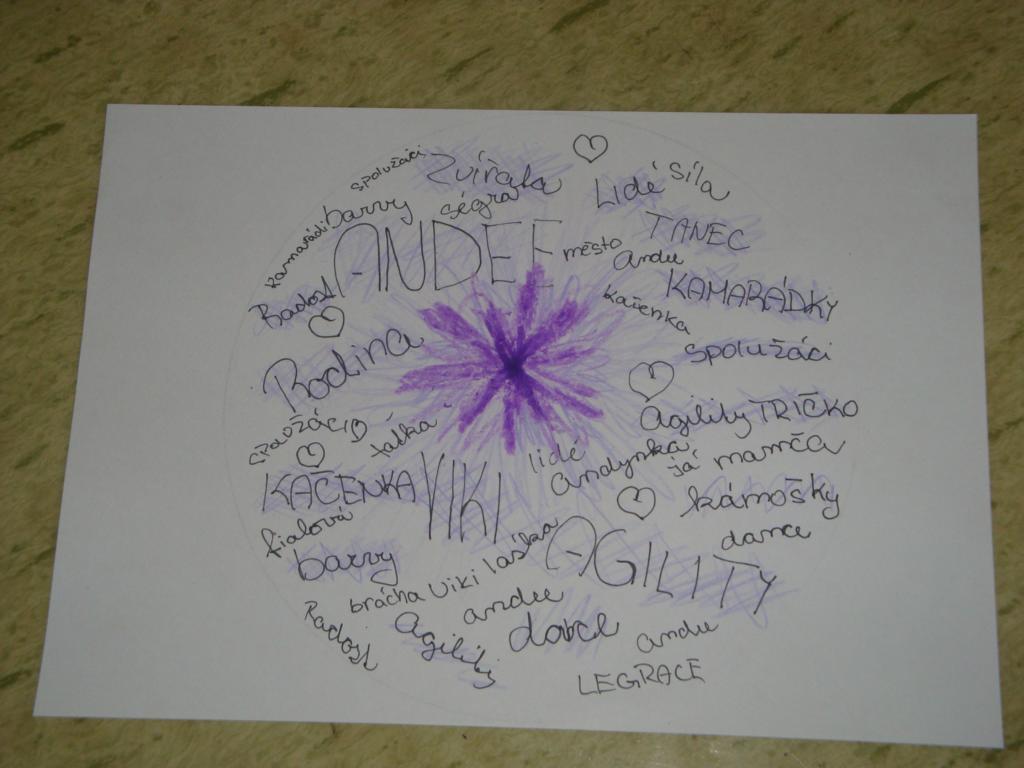 spolužáci
Zvířata
Lidé síla
barvy
ségra
kamarádi
TANEC
ANDEE
město
andee
Radost
kačenka
KAMARÁDKY
Rodina
spolužáci
Agility TRIČKO
spolužáci
taťka
lidé
andynka
já mamča
KAČENKA
VIKI
kámošky
fialová
dance
AGILITY
barvy
láska
brácha Viki
andee
Radost
Agility
dance
andee
LEGRACE